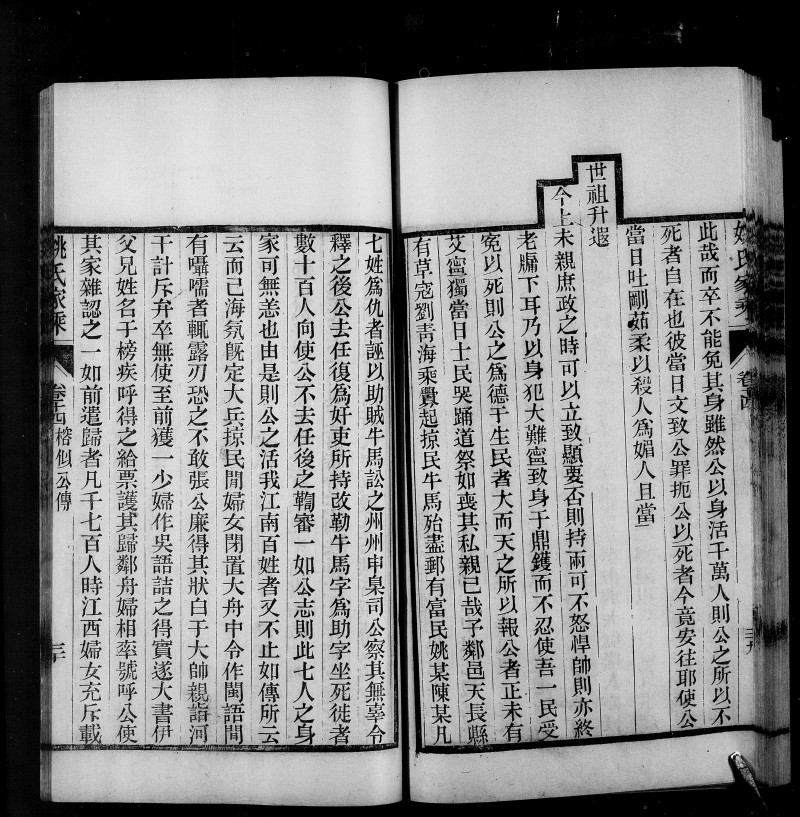 姚氏家乘
卷十四
三九
此哉而卒不能免其身雖然公以身活千萬人則公之所以不
死者自在也彼當日文致公罪扼公以死者今竟安往耶使公
當日吐剛茹柔以殺人爲媚人且當
世祖升遐
今上未親庶政之時可以立致顯要否則持兩可不怒悍帥則亦終
老牖下耳乃以身犯大難寧致身于鼎鑊而不忍使吾一民受
冤以死則公之爲德于生民者大而天之所以報公者正未有
艾寧獨當日士民哭踊道祭如喪其私親已哉子鄰邑天長縣
有草寇劉青海乘釁起掠民牛馬殆盡郵有富民姚某陳某凡
七姓爲仇者誣以助賊牛馬訟之州州申臬司公察其無辜令
釋之後公去任復爲奸吏所持改勒牛馬字爲助字坐死徙者
數十百人向使公不去任後之鞫審一如公志則此七人之身
家可無恙也由是則公之活我江南百姓者又不止如傳所云
云而已海氛旣定大兵掠民閒婦女閉置大舟中令作閩語間
有囁嚅者輒露刃恐之不敢張公廉得其狀白于大帥親詣河
干計斥弁卒無使至前獲一少婦作吳語詰之得實遂大書伊
父兄姓名于榜疾呼得之給票護其歸鄰舟婦相率號呼公使
其家雜認之一如前遣歸者凡千七百人時江西婦女充斥載
姚氏家乘
卷十四 榕似公傳
三十